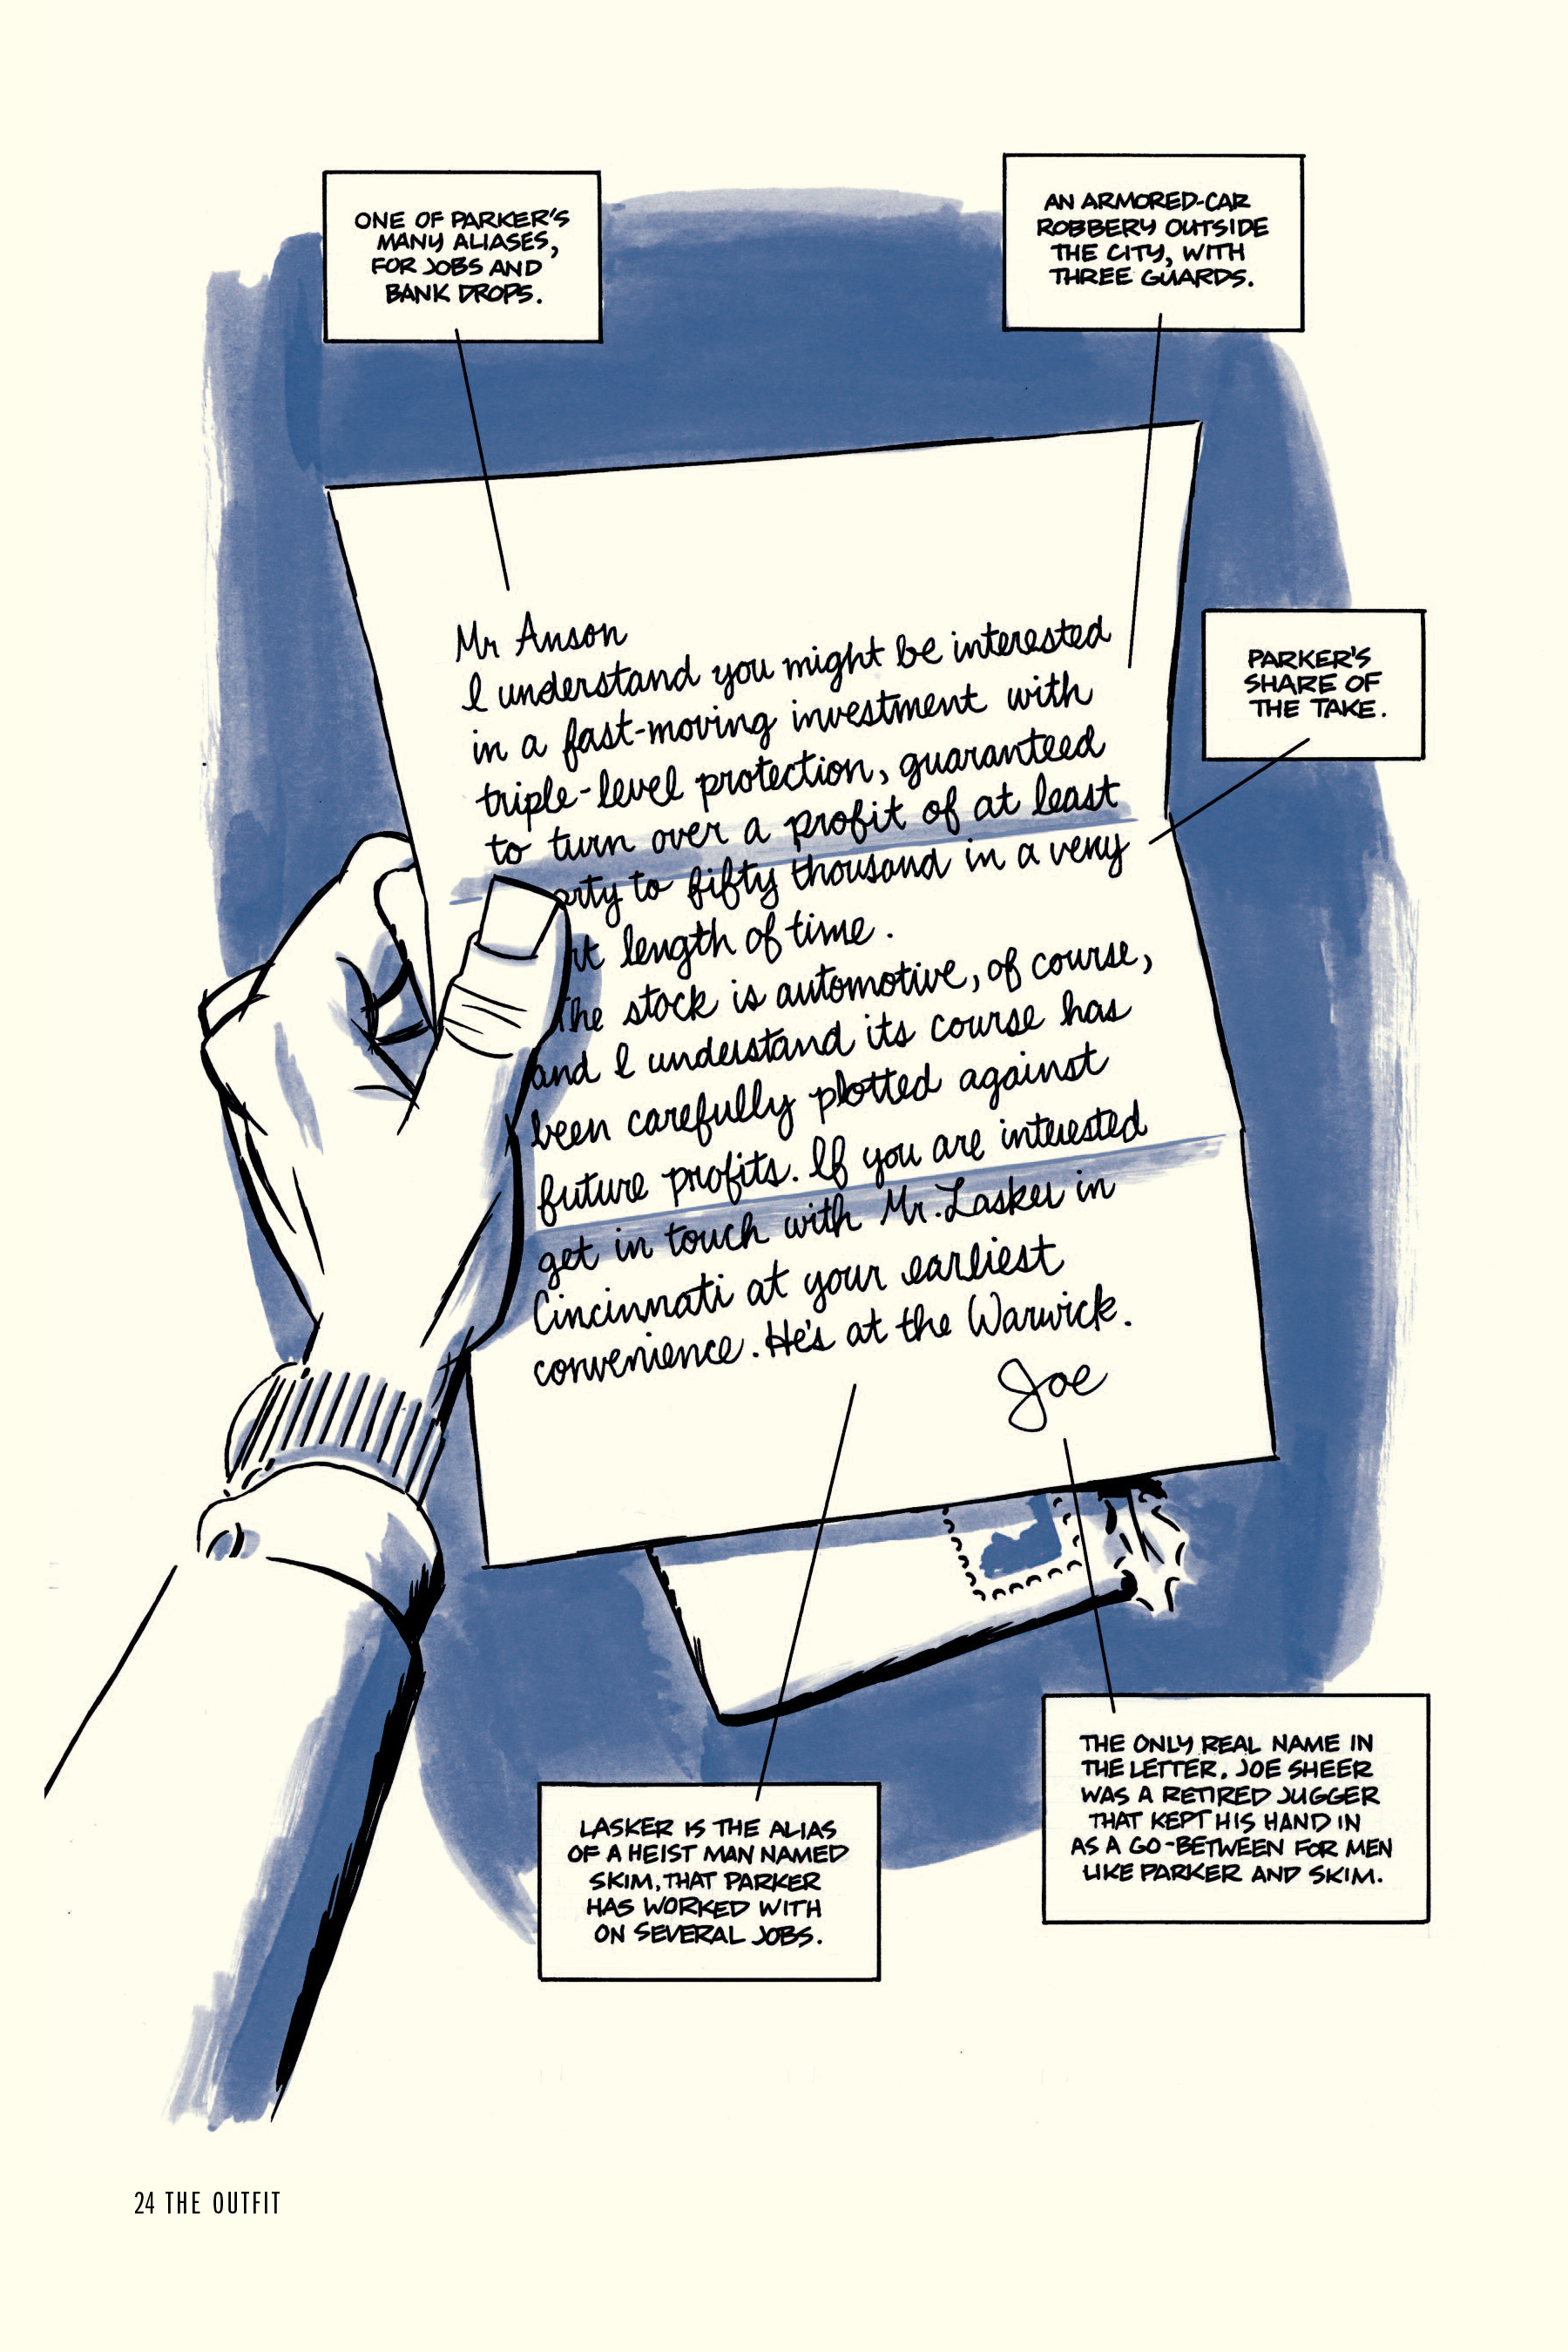 ONE OF PARKER'S
MANY ALIASES,
FOR JOBS AND
BANK DROPS.
AN ARMORED-CAR
ROBBERY OUTSIDE
THE CITY, WITH
THREE GUARDS.
PARKER'S
SHARE OF
THE TAKE.
Mr Anson
I understand you might be interested
in a fast-moving investment with
triple-level protection, guaranteed
to turn over a profit of at least
orty to fifty thousand in a very
rt length of time.
The stock is automotive, of course,
and I understand its course has
been carefully plotted against
future profits. If you are interested
get in touch with Mr. Lasker in
Cincinnati at your earliest
convenience. He's at the Warwick.
Joe
LASKER IS THE ALIAS
OF A HEIST MAN NAMED
SKIM, THAT PARKER
HAS WORKED WITH
ON SEVERAL JOBS.
THE ONLY REAL NAME IN
THE LETTER. JOE SHEER
WAS A RETIRED JUGGER
THAT KEPT HIS HAND IN
AS A GO-BETWEEN FOR MEN
LIKE PARKER AND SKIM.
24 THE OUTFIT